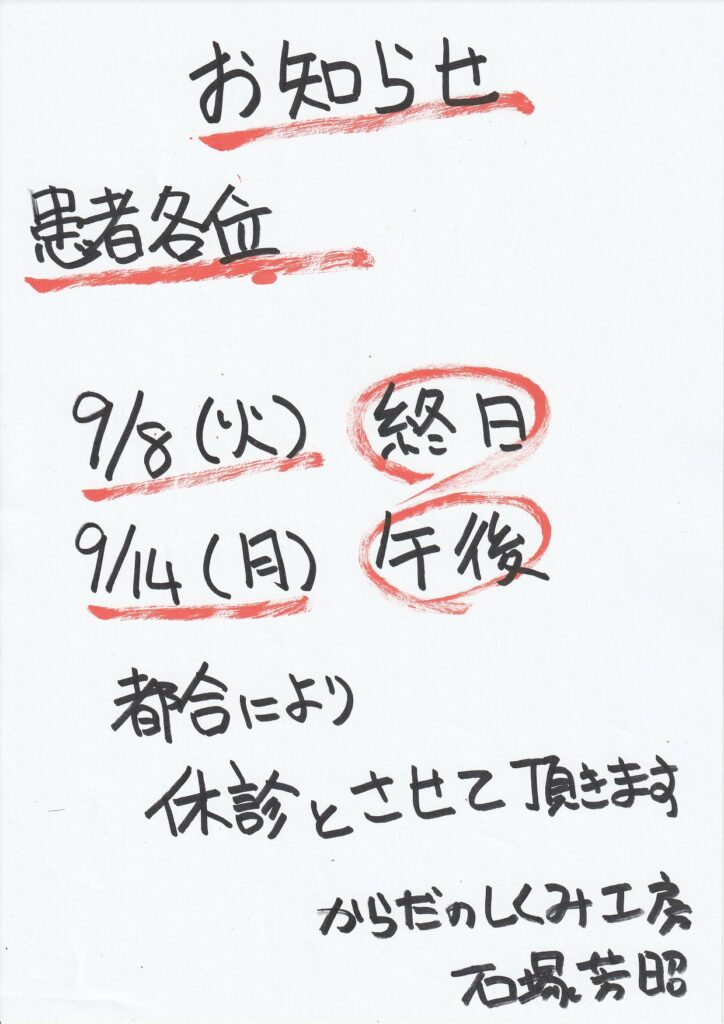 お知らせ
患者各位
9/8(火) 終日
9/14(月) 午後
都合により
休診とさせて頂きます
からだのしくみ工房
石塚芳昭